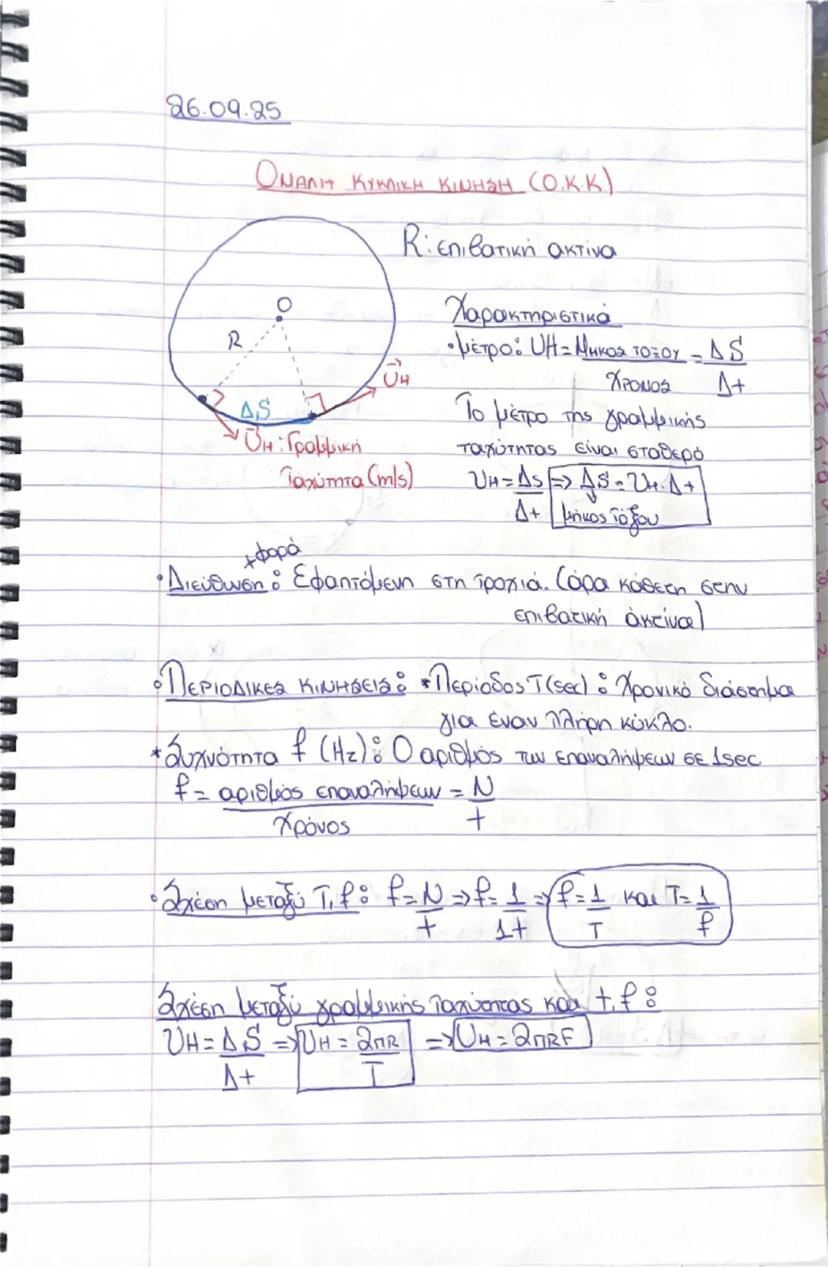 26.09.25
ΟΜΑΛΗ ΚΥΚΛΙΚΗ ΚΙΝΗΣΗ (Ο.Κ.Κ)
R: επιβατική ακτίνα
O
R
ΔS
υH
υH: Γραμμική
Ταχύτητα (m/s)
Χαρακτηριστικά
• μέτρο: υH = ΜΗΚΟΣ ΤΟΞΟΥ / ΧΡΟΝΟΣ = ΔS / Δt
Το μέτρο της γραμμικής
ταχύτητας είναι σταθερό
υH = ΔS / Δt => ΔS = υH · Δt
μήκος τόξου
+ φορά
• Διεύθυνση: Εφαπτόμενη στη τροχιά. (άρα κάθετη στην
επιβατική άκτίνα)
• ΠΕΡΙΟΔΙΚΕΣ ΚΙΝΗΣΕΙΣ: * Περίοδος T (sec): Χρονικό διάστημα
για έναν πλήρη κύκλο.
* Συχνότητα f (Hz): Ο αριθμός των επαναλήψεων σε 1sec
f = αριθμός επαναλήψεων / χρόνος = N / t
• Σχέση μεταξύ T, f: f = N / t => f = 1 / 1t => f = 1 / T και T = 1 / f
Σχέση μεταξύ γραμμικής ταχύτητας και t, f:
υH = ΔS / Δt => υH = 2πR / T => υH = 2πRF